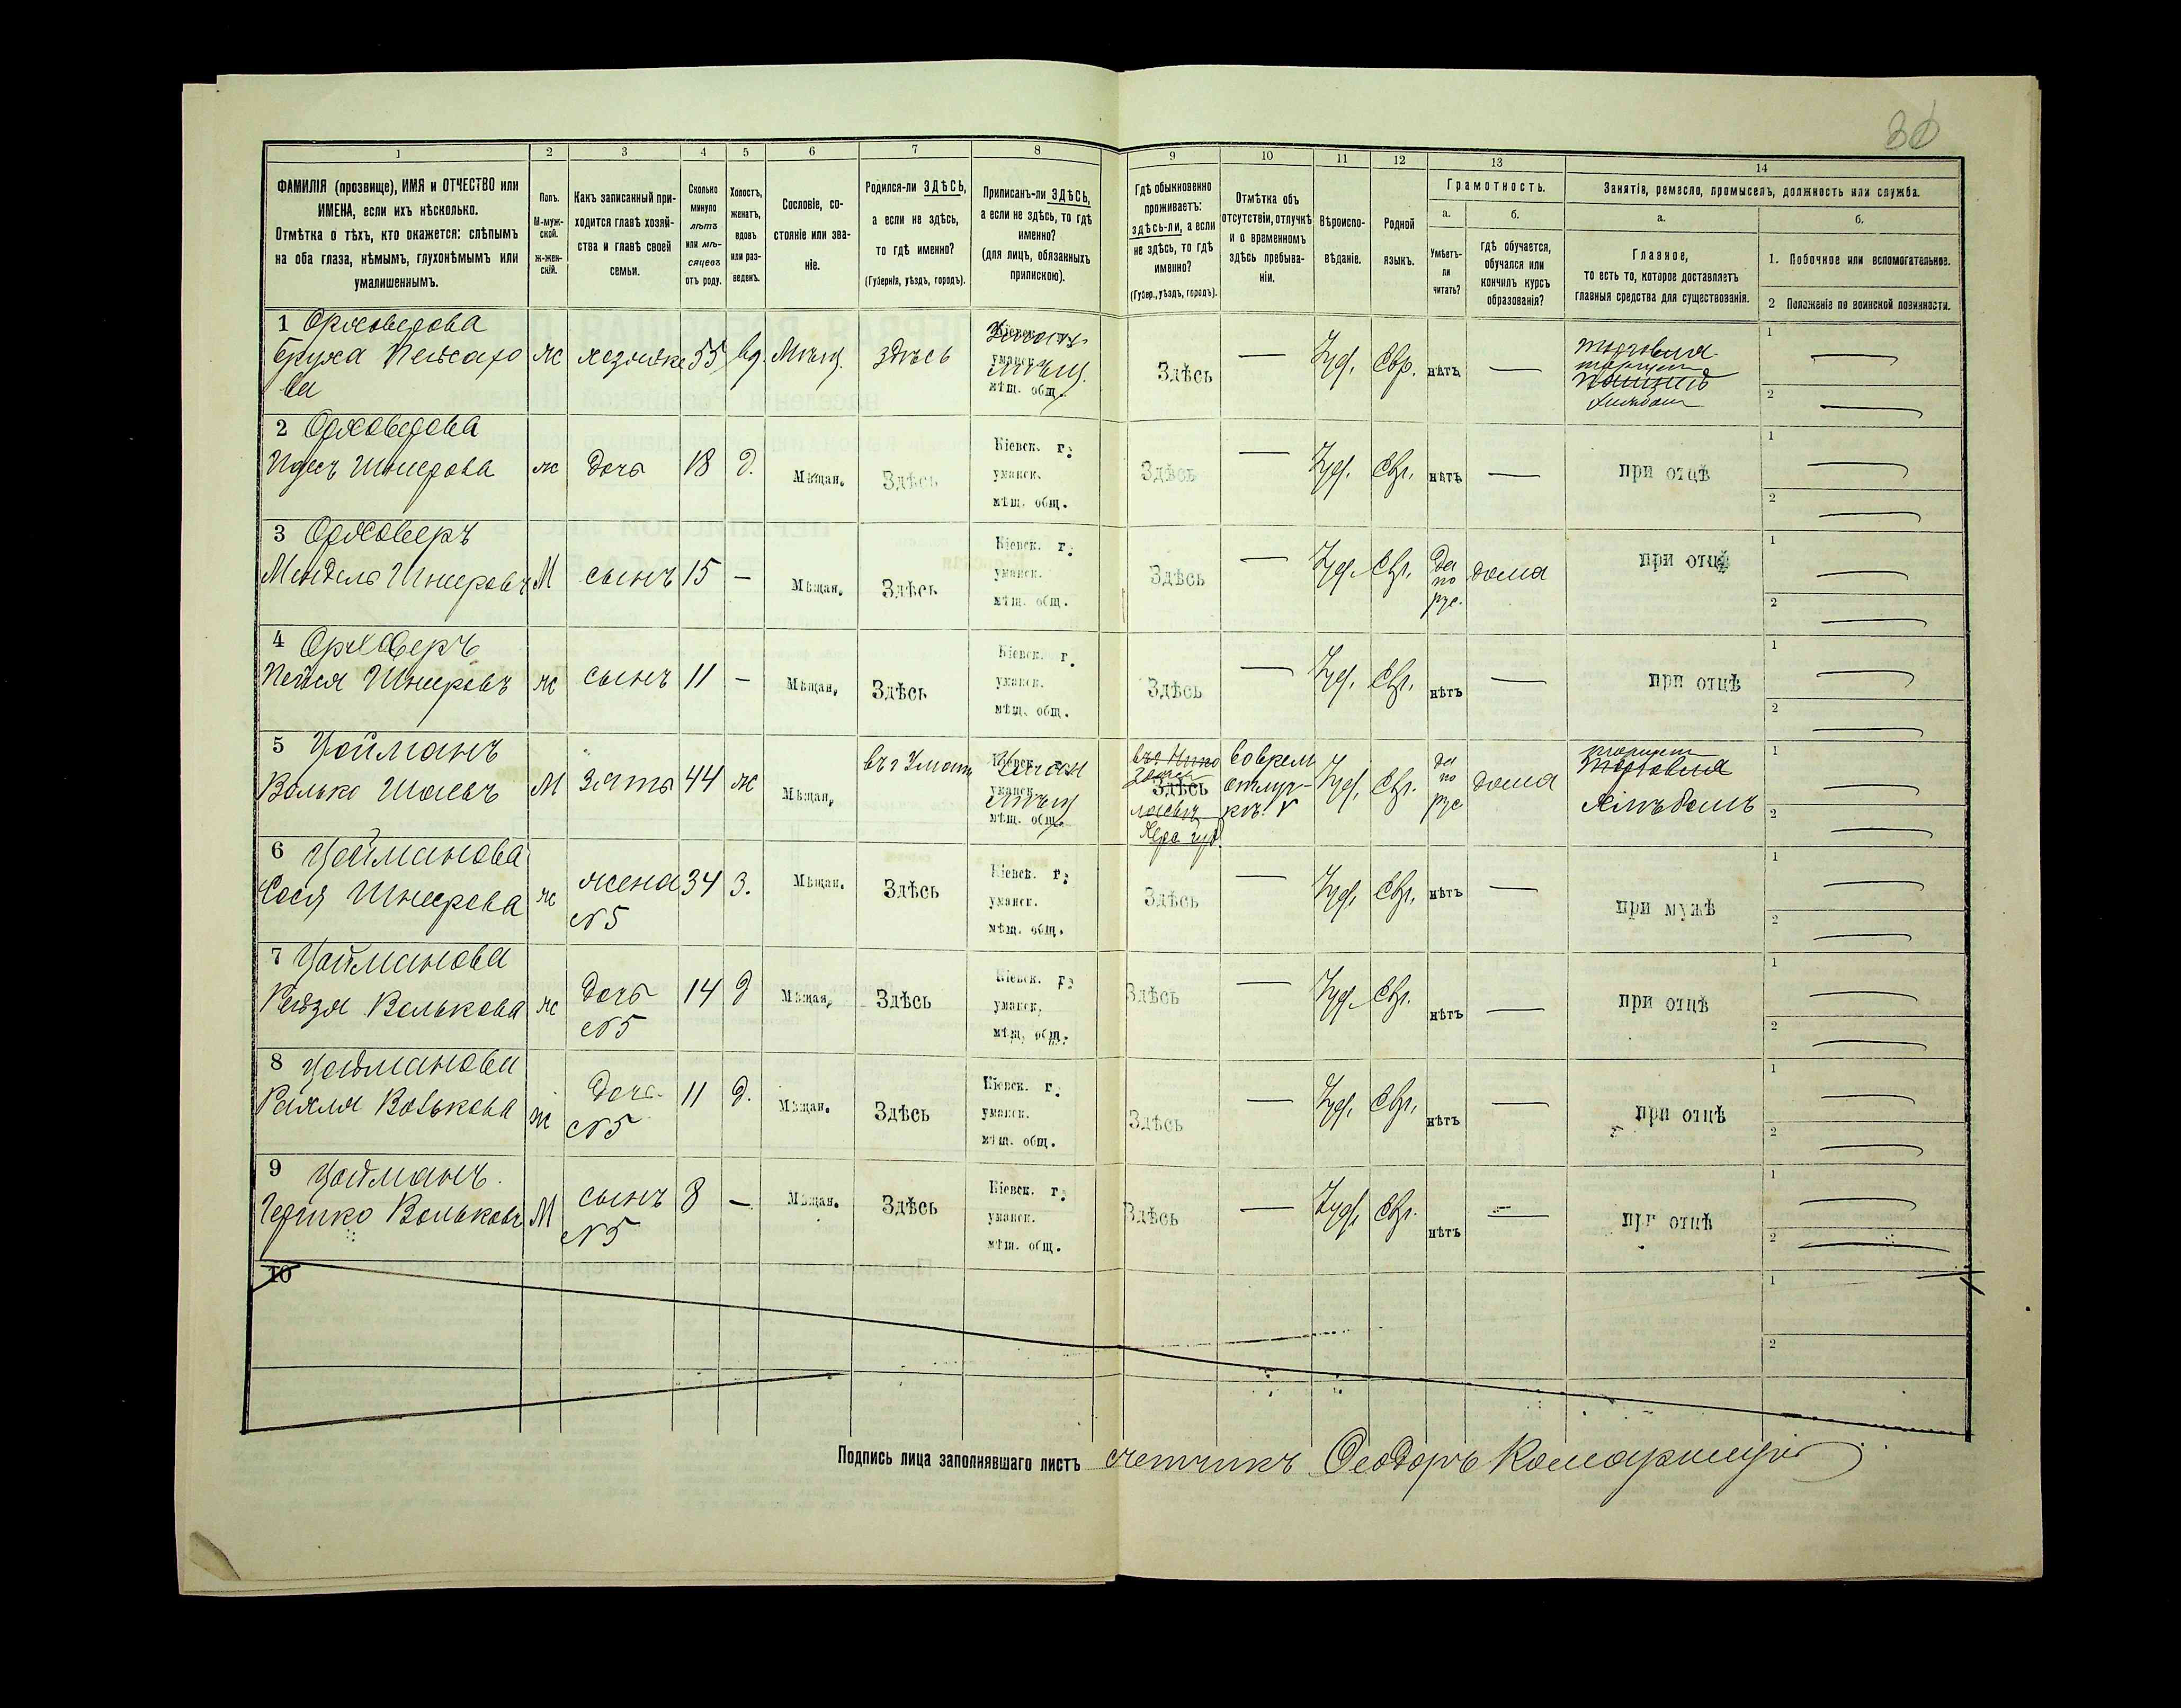 30
1 2 3 4 5 6 7 8 9 10 11 12 13 14
ФАМИЛІЯ (прозвище), ИМЯ и ОТЧЕСТВО или
ИМЕНА, если ихъ нѣсколько.
Отмѣтка о тѣхъ, кто окажется: слѣпымъ
на оба глаза, нѣмымъ, глухонѣмымъ или
умалишеннымъ.
Полъ.
М-муж-
ской.
Ж-жен-
скій.
Какъ записанный при-
ходится главѣ хозяй-
ства и главѣ своей
семьи.
Сколько
минуло
лѣтъ
или мѣ-
сяцевъ
отъ роду.
Холостъ,
женатъ,
вдовъ
или раз-
веденъ.
Сословіе, со-
стояніе или зва-
ніе.
Родился-ли ЗДѢСЬ,
а если не здѣсь,
то гдѣ именно?
(Губернія, уѣздъ, городъ).
Приписанъ-ли ЗДѢСЬ,
а если не здѣсь, то гдѣ
именно?
(для лицъ, обязанныхъ
припискою).
Гдѣ обыкновенно
проживаетъ:
здѣсь-ли, а если
не здѣсь, то гдѣ
именно?
(Губер., уѣздъ, городъ).
Отмѣтка объ
отсутствіи, отлучкѣ
и о временномъ
здѣсь пребыва-
ніи.
Вѣроиспо-
вѣданіе.
Родной
языкъ.
Грамотность.
а.
Умѣетъ-
ли
читать?
б.
гдѣ обучается,
обучался или
кончилъ курсъ
образованія?
Занятіе, ремесло, промыселъ, должность или служба.
а.
Главное,
то есть то, которое доставляетъ
главныя средства для существованія.
б.
1. Побочное или вспомогательное.
2 Положеніе по воинской повинности.
1 Орховерова
Бруха Пейсахо
ва
ж хозяйка 55 вд. Мѣщ. здѣсь
Здѣсь — Іуд. Евр. нѣтъ —
торговля
2 Орховерова
Шнеерова ж дочь 18 д. Мѣщан. Здѣсь
Кіевск. г.
уманск.
мѣщ. общ.
Здѣсь — Іуд. Евр. нѣтъ — при отцѣ
3 Орховеръ
Мендель Шнееровъ М сынъ 15 — Мѣщан. Здѣсь
Кіевск. г.
уманск.
мѣщ. общ.
Здѣсь — Іуд. Евр. да
по
рус. дома при отцѣ
4 Орховеръ
Шнееровъ ж сынъ 11 — Мѣщан. Здѣсь
Кіевск. г.
уманск.
мѣщ. общ.
Здѣсь — Іуд. Евр. нѣтъ — при отцѣ
5 Цойманъ
Волько М зять 44 ж Мѣщан.
Здѣсь
Іуд. Евр. да
по
рус дома
торговля
хлѣбомъ
6 Цойманова
Шнеерова ж жена 34 З. Мѣщан. Здѣсь
№5
Кіевск. г.
уманск.
мѣщ. общ.
Здѣсь — Іуд. Евр. нѣтъ — при мужѣ
7 Цойманова
Рейзя Волькова ж дочь 14 д Мѣщан. Здѣсь
№5
Кіевск. г.
уманск.
мѣщ. общ.
Здѣсь — Іуд. Евр. нѣтъ — при отцѣ
8 Цойманова
Рахля Волькова ж дочь 11 д. Мѣщан. Здѣсь
№5
Кіевск. г.
уманск.
мѣщ. общ.
Здѣсь — Іуд. Евр. нѣтъ — при отцѣ
9 Цойманъ
Гершко Вольковъ М сынъ 8 — Мѣщан. Здѣсь
№5
Кіевск. г.
уманск.
мѣщ. общ.
Здѣсь — Іуд. Евр. нѣтъ — при отцѣ
10
Подпись лица заполнявшаго листъ счетчикъ Ѳеодоръ